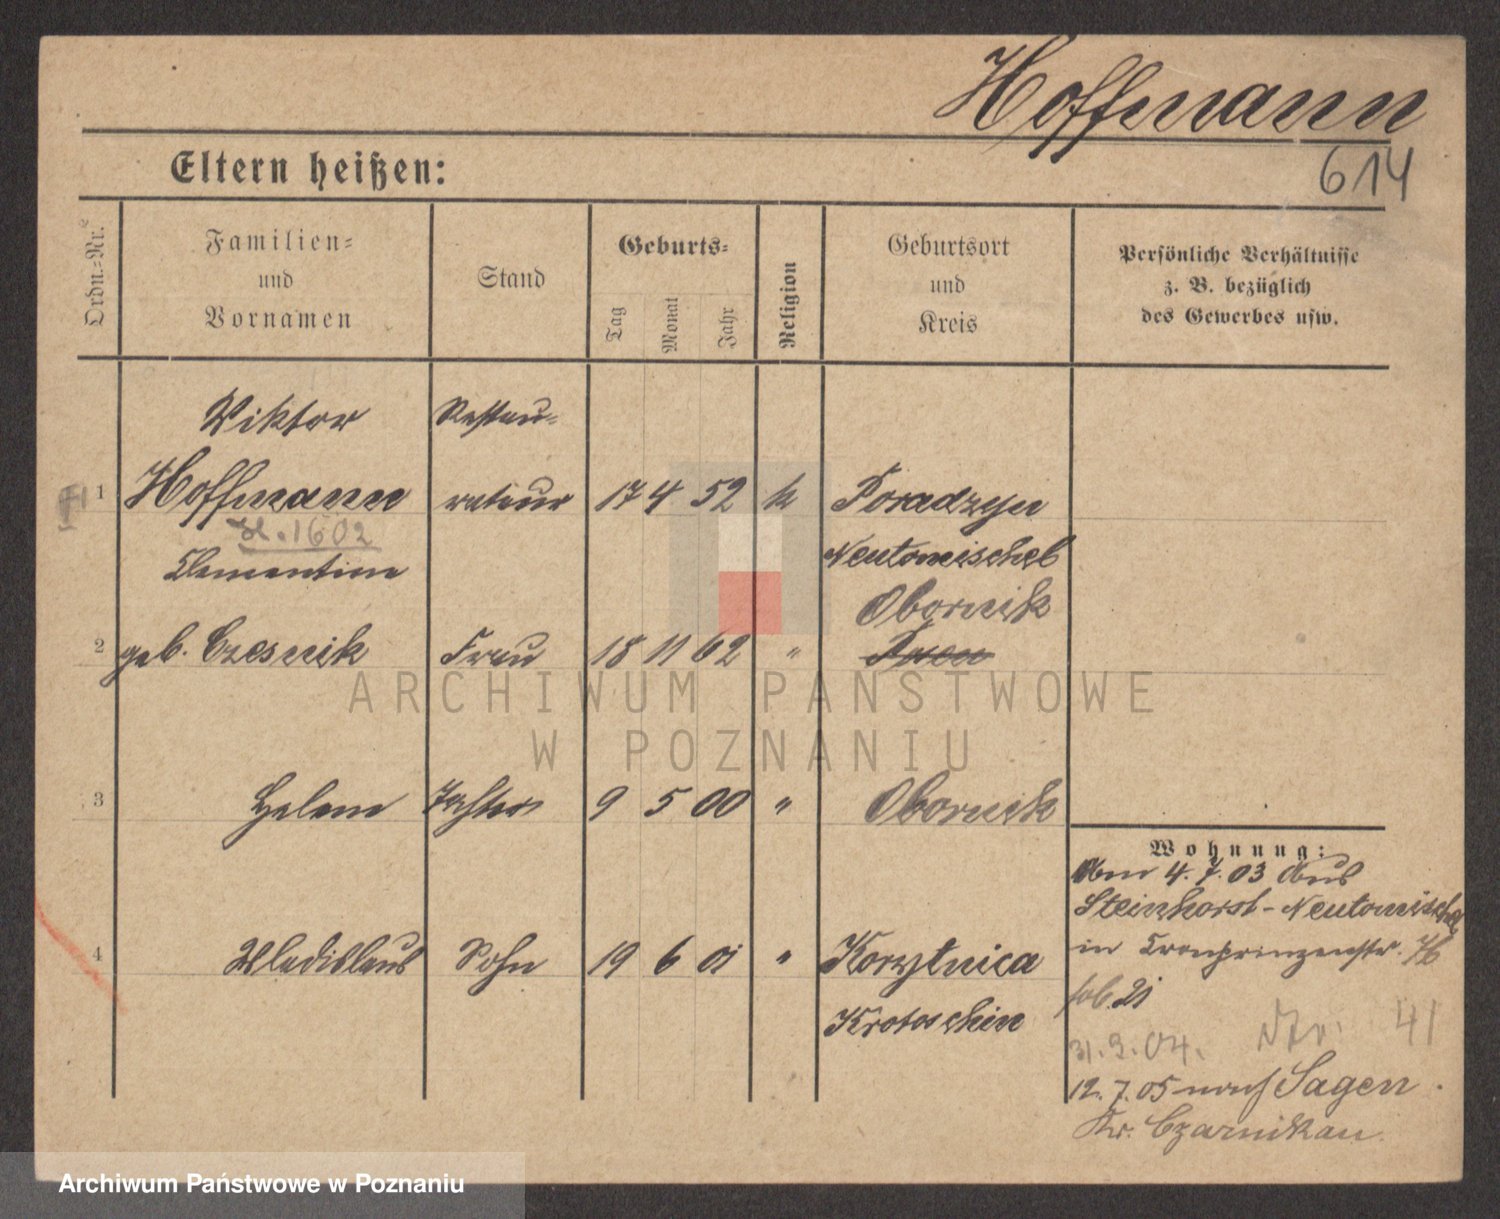 Hoffmann
614
Eltern heißen:
Ordn.-Nr.
Familien-
und
Vornamen
Stand
Geburts-
Tag
Monat
Jahr
Religion
Geburtsort
und
Kreis
Persönliche Verhältnisse
z. B. bezüglich
des Gewerbes usw.
Viktor Restau-
1 Hoffmann rateur 17 4 52 k Poradzyn
H. 1602
Neutomischel
Clementine
Obornik
2 geb. Czesnik Frau 18 11 62 " Posen
ARCHIWUM PANSTWOWE
W POZNANIU
3 Helene Tochter 9 5 00 " Obornik
Wohnung:
Am 4. 7. 03 aus
Steinhorst-Neutomischel
4 Wladislaus Sohn 19 6 01 " Korytnica
in Kronprinzenstr.
Krotoschin
31. 3. 04. Nr. 41
12. 7. 05 nach Sagen
Kr. Czarnikau.
Archiwum Państwowe w Poznaniu